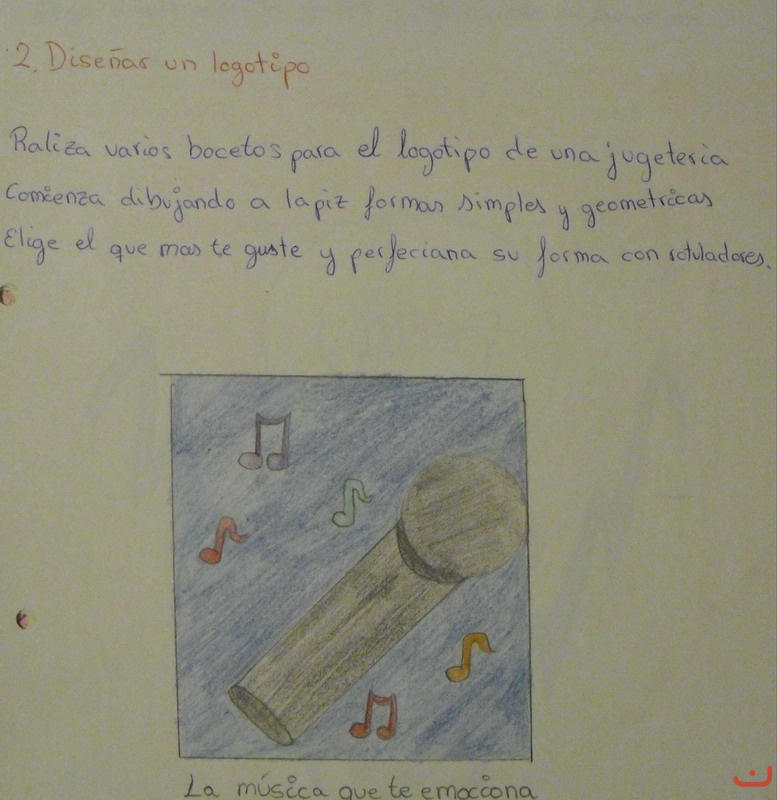 2. Diseñar un logotipo
Raliza varios bocetos para el logotipo de una jugeteria
Comienza dibujando a lapiz formas simples y geometricas
Elige el que mas te guste y perfeciana su forma con rotuladores.
La música que te emociona